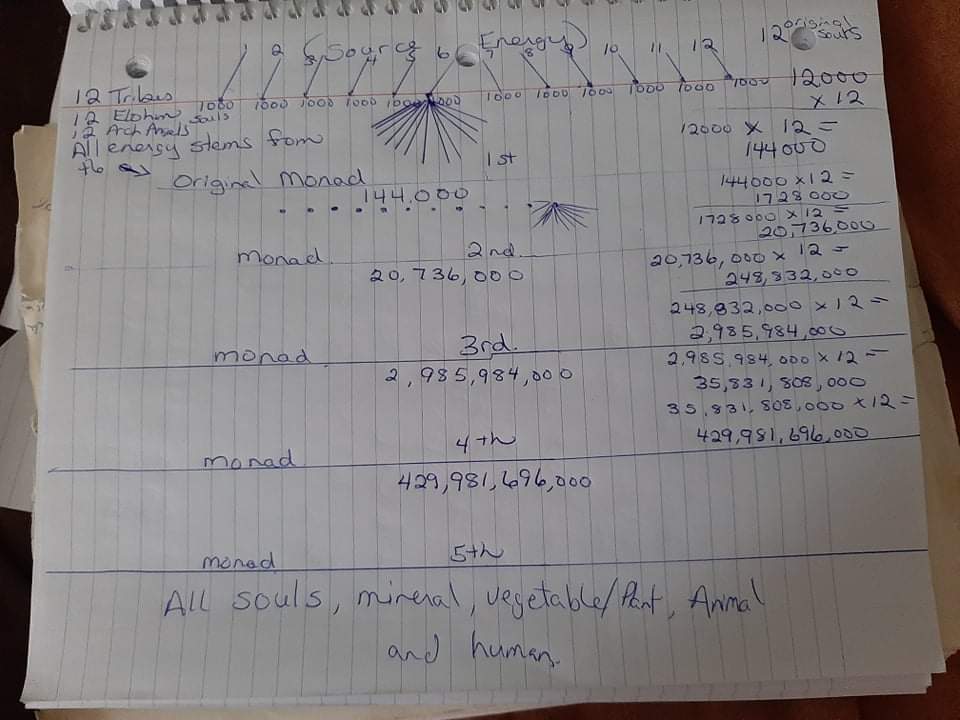 1 2 3 (Source 4 5 6 Energy) 7 8 9 10 11 12
12 original souls
12 Tribes
1000 1000 1000 1000 1000 1000 1000 1000 1000 1000 1000 1000
12000
x 12
12 Elohim souls
12 Arch Angels
12000 x 12 =
144000
All energy stems from
the
1st
Original Monad
144,000
144000 x 12 =
1728000
1728000 x 12 =
20,736,000
monad 2nd.
20,736,000
20,736,000 x 12 =
248,832,000
248,832,000 x 12 =
2,985,984,000
monad 3rd.
2,985,984,000
2,985,984,000 x 12 =
35,831,808,000
35,831,808,000 x 12 =
429,981,696,000
monad 4th
429,981,696,000
monad 5th
All souls, mineral, vegetable/Plant, Animal
and human.